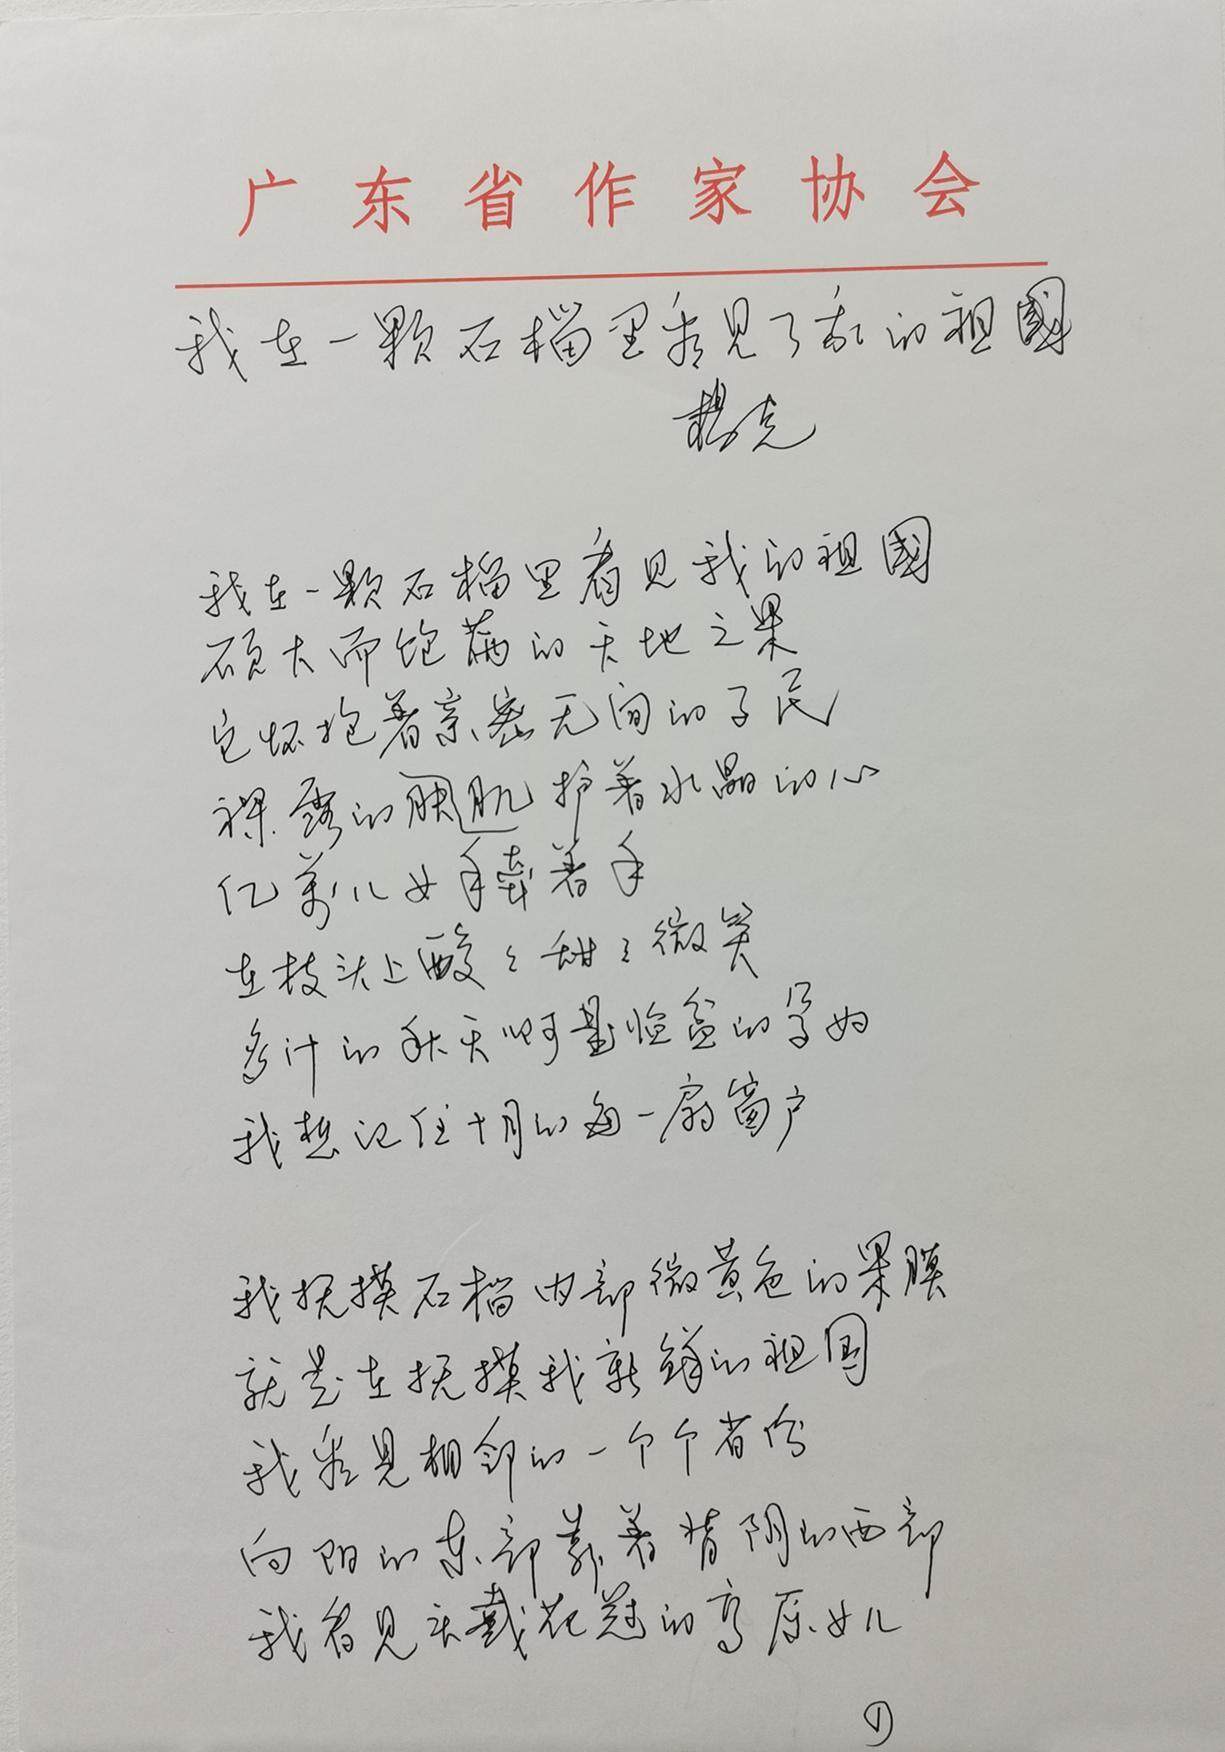 广东省作家协会
我在一颗石榴里看见了我的祖國
杨克
我在一颗石榴里看见我的祖國
硕大而饱满的天地之果
它怀抱着亲密无间的子民
裸露的肌肤护着水晶的心
亿萬儿女手牵着手
在枝头上酸〻甜〻微笑
多汁的秋天啊是临盆的孕妇
我想记住十月的每一扇窗户
我抚摸石榴内部微黄色的果膜
就是在抚摸我新鲜的祖国
我看见相邻的一个个省份
向阳的东部靠着背阴的西部
我看见头戴花冠的高原女儿
①